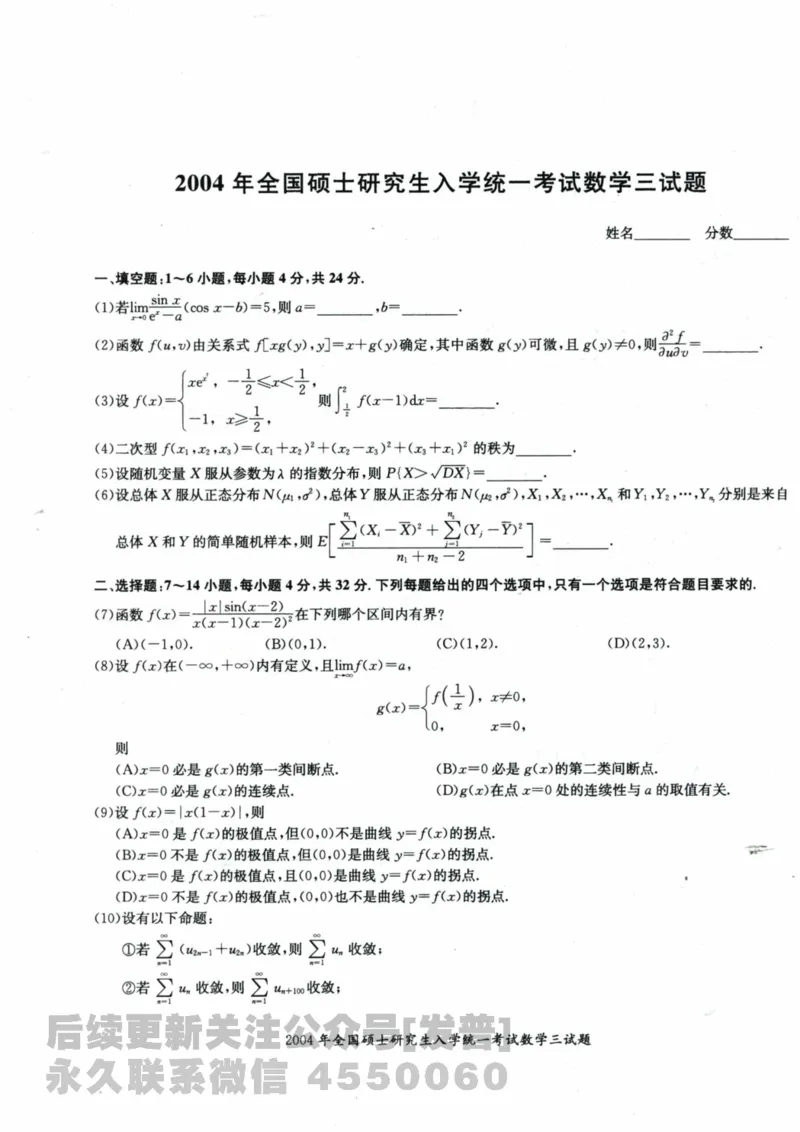 2004 年全国硕士研究生入学统一考试数学三试题
姓名______ 分数______
一、填空题:1～6 小题,每小题 4 分,共 24 分.
(1)若$\lim\limits_{x\to 0}\frac{\sin x}{e^x-a}(\cos x-b)=5$,则 a=______,b=______.
(2)函数 f(u,v)由关系式 f[xg(y),y]=x+g(y)确定,其中函数 g(y)可微,且 g(y)≠0,则$\frac{\partial^2 f}{\partial u\partial v}$=______.
(3)设 f(x)=$\begin{cases}xe^{x^2}, & -\frac{1}{2}\le x<\frac{1}{2},\\ -1, & x\ge\frac{1}{2},\end{cases}$ 则$\int_{\frac{1}{2}}^{2} f(x-1)dx$=______.
(4)二次型 f(x₁,x₂,x₃)=(x₁+x₂)²+(x₂-x₃)²+(x₃+x₁)² 的秩为______.
(5)设随机变量 X 服从参数为 λ 的指数分布,则 P{X>√DX}=______.
(6)设总体 X 服从正态分布 N(μ₁,σ²),总体 Y 服从正态分布 N(μ₂,σ²),X₁,X₂,⋯,$X_{n_1}$ 和 Y₁,Y₂,⋯,$Y_{n_2}$ 分别是来自
总体 X 和 Y 的简单随机样本,则 $E\left[\frac{\sum\limits_{i=1}^{n_1}(X_i-\overline{X})^2+\sum\limits_{j=1}^{n_2}(Y_j-\overline{Y})^2}{n_1+n_2-2}\right]$=______.
二、选择题:7～14 小题,每小题 4 分,共 32 分. 下列每题给出的四个选项中,只有一个选项是符合题目要求的.
(7)函数 f(x)=$\frac{|x|\sin(x-2)}{x(x-1)(x-2)^2}$在下列哪个区间内有界?
(A)(-1,0). (B)(0,1). (C)(1,2). (D)(2,3).
(8)设 f(x)在(-∞,+∞)内有定义,且$\lim\limits_{x\to\infty}f(x)=a$,
$g(x)=\begin{cases}f\left(\frac{1}{x}\right), & x\ne 0,\\ 0, & x=0,\end{cases}$
则
(A)x=0 必是 g(x)的第一类间断点. (B)x=0 必是 g(x)的第二类间断点.
(C)x=0 必是 g(x)的连续点. (D)g(x)在点 x=0 处的连续性与 a 的取值有关.
(9)设 f(x)=|x(1-x)|,则
(A)x=0 是 f(x)的极值点,但(0,0)不是曲线 y=f(x)的拐点.
(B)x=0 不是 f(x)的极值点,但(0,0)是曲线 y=f(x)的拐点.
(C)x=0 是 f(x)的极值点,且(0,0)是曲线 y=f(x)的拐点.
(D)x=0 不是 f(x)的极值点,(0,0)也不是曲线 y=f(x)的拐点.
(10)设有以下命题:
①若 $\sum\limits_{n=1}^{\infty}(u_{2n-1}+u_{2n})$收敛,则 $\sum\limits_{n=1}^{\infty}u_n$ 收敛;
②若 $\sum\limits_{n=1}^{\infty}u_n$ 收敛,则 $\sum\limits_{n=1}^{\infty}u_{n+100}$收敛;
后续更新关注公众号[发普]
2004 年全国硕士研究生入学统一考试数学三试题
永久联系微信 4550060